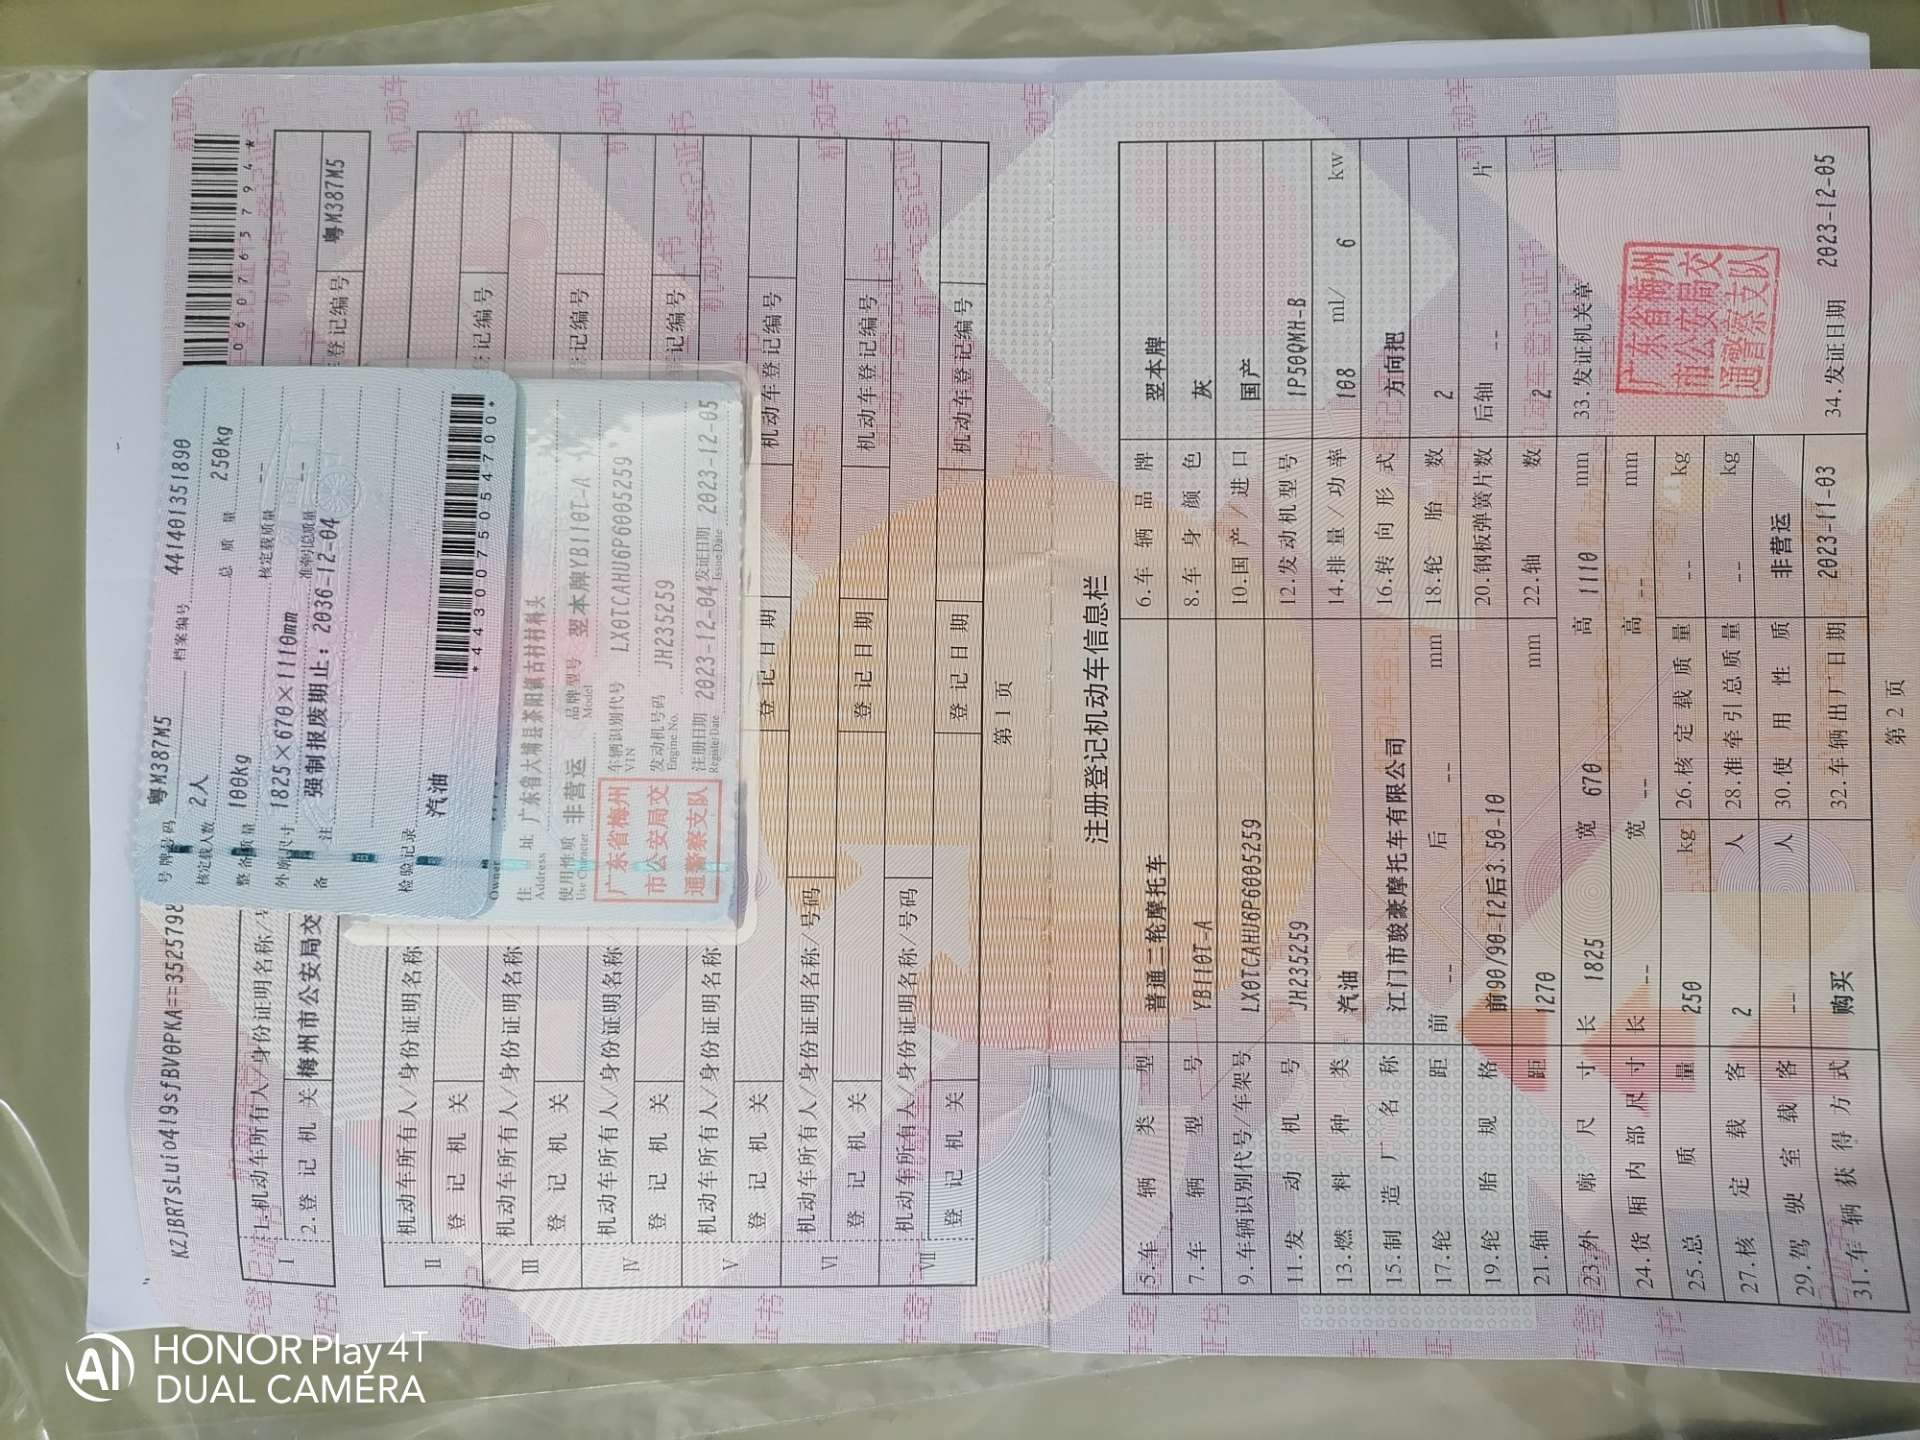 KZjBR7sLuio4l9sfBV0PKA==3525798
1.机动车所有人/身份证明名称/号
I
2.登记机关 梅州市公安局交
登记编号 粤M387M5
号牌号码 粤M387M5 档案编号 441401351890
核定载人数 2人 总质量 250kg
整备质量 100kg 核定载质量 --
外廓尺寸 1825×670×1110mm 准牵引总质量 --
备注 强制报废期止：2036-12-04
检验记录 汽油
*4430075054700*
Owner
住址 广东省大埔县茶阳镇古村村料头
Address
使用性质 非营运 品牌型号 翌本牌YB110T-A
Use Character Model
车辆识别代号 LX0TCAHU6P6005259
VIN
发动机号码 JH235259
Engine No.
注册日期 2023-12-04 发证日期 2023-12-05
Register Date Issue Date
广东省梅州
市公安局交
通警察支队
II
机动车所有人/身份证明名称
登记机关
登记编号
III
机动车所有人/身份证明名称
登记机关
登记编号
IV
机动车所有人/身份证明名称
登记机关
登记编号
V
机动车所有人/身份证明名称
登记机关 登记日期 机动车登记编号
VI
机动车所有人/身份证明名称/号码
登记机关 登记日期 机动车登记编号
VII
机动车所有人/身份证明名称/号码
登记机关 登记日期 机动车登记编号
第1页
注册登记机动车信息栏
5.车辆类型 普通二轮摩托车 6.车辆品牌 翌本牌
7.车辆型号 YB110T-A 8.车身颜色 灰
9.车辆识别代号/车架号 LX0TCAHU6P6005259 10.国产/进口 国产
11.发动机号 JH235259 12.发动机型号 1P50QMH-B
13.燃料种类 汽油 14.排量/功率 108 ml/ 6 kw
15.制造厂名称 江门市骏豪摩托车有限公司 16.转向形式 方向把
17.轮距 前 -- 后 -- mm 18.轮胎数 2
19.轮胎规格 前90/90-12后3.50-10 20.钢板弹簧片数 后轴 -- 片
21.轴距 1270 mm 22.轴数 2
23.外廓尺寸 长 1825 宽 670 高 1110 mm 33.发证机关章
24.货厢内部尺寸 长 -- 宽 -- 高 -- mm
25.总质量 250 kg 26.核定载质量 -- kg
27.核定载客 2 人 28.准牵引总质量 -- kg
29.驾驶室载客 -- 人 30.使用性质 非营运
31.车辆获得方式 购买 32.车辆出厂日期 2023-11-03 34.发证日期 2023-12-05
广东省梅州
市公安局交
通警察支队
第2页
HONOR Play 4T
DUAL CAMERA